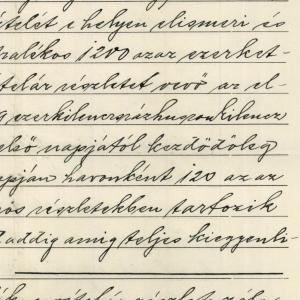 ételét e helyen elismeri és
zalékos 1200 azaz ezerket-
ételár részletet vevő az el-
g ezerkilencszázhuszonkilencz
első napjától kezdődőleg
apján havonként 120 az az
os részletekben tartozik
addig amig teljes kiegyenli-